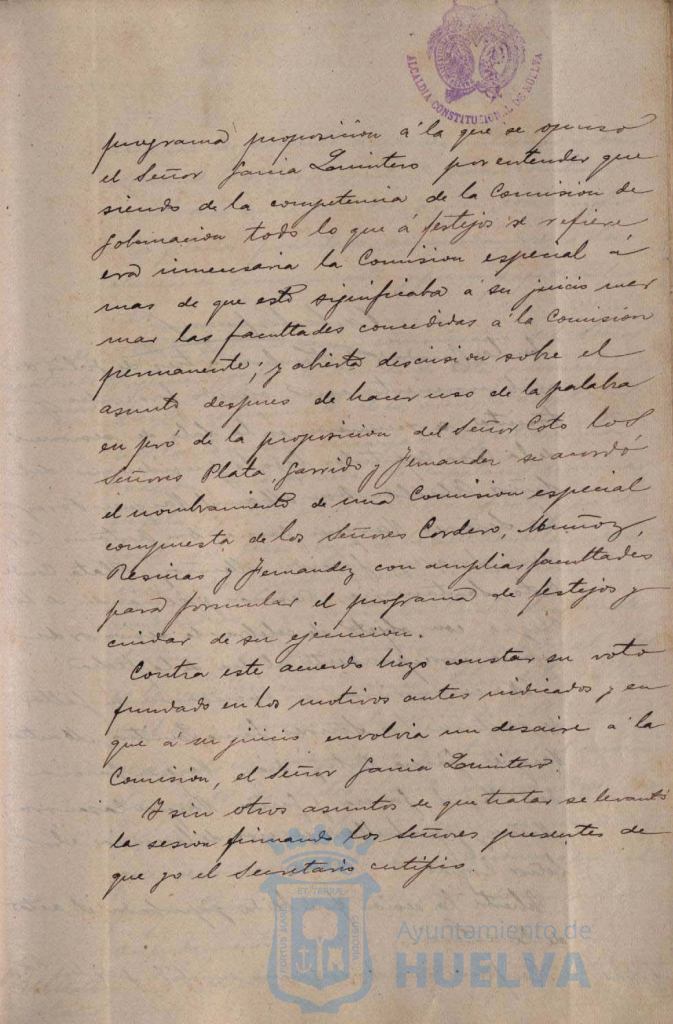 ALCALDIA CONSTITUCIONAL DE HUELVA
programa proposicion á la que se opuso
el Señor Garcia Quintero por entender que
siendo de la competencia de la Comision de
Gobernacion todo lo que á festejos se refiere
era innecesaria la Comision especial á
mas de que esto significaba á su juicio mer
mar las facultades concedidas á la Comision
permanente; y abierta discusion sobre el
asunto despues de hacer uso de la palabra
en pró de la proposicion del Señor Coto los
Señores Plata, Garrido y Fernandez se acordó
el nombramiento de una Comision especial
compuesta de los Señores Cordero, Muñoz,
Resinas y Fernandez con amplias facultades
para formular el programa de festejos y
cuidar de su ejecucion.
Contra este acuerdo hizo constar su voto
fundado en los motivos antes indicados y en
que á su juicio envolvia un desaire á la
Comision, el Señor Garcia Quintero.
Y sin otros asuntos de que tratar se levantó
la sesion firmando los Señores presentes de
que yo el Secretario certifico.
PORTUS MARIS ET TERRAE CUSTODIA
Ayuntamiento de
HUELVA